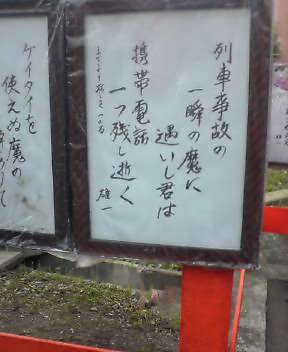 列車事故の
一瞬の魔に
遇いし君は
携帯電話
一つ残し逝く
雄一
ケイタイを
使えぬ魔の